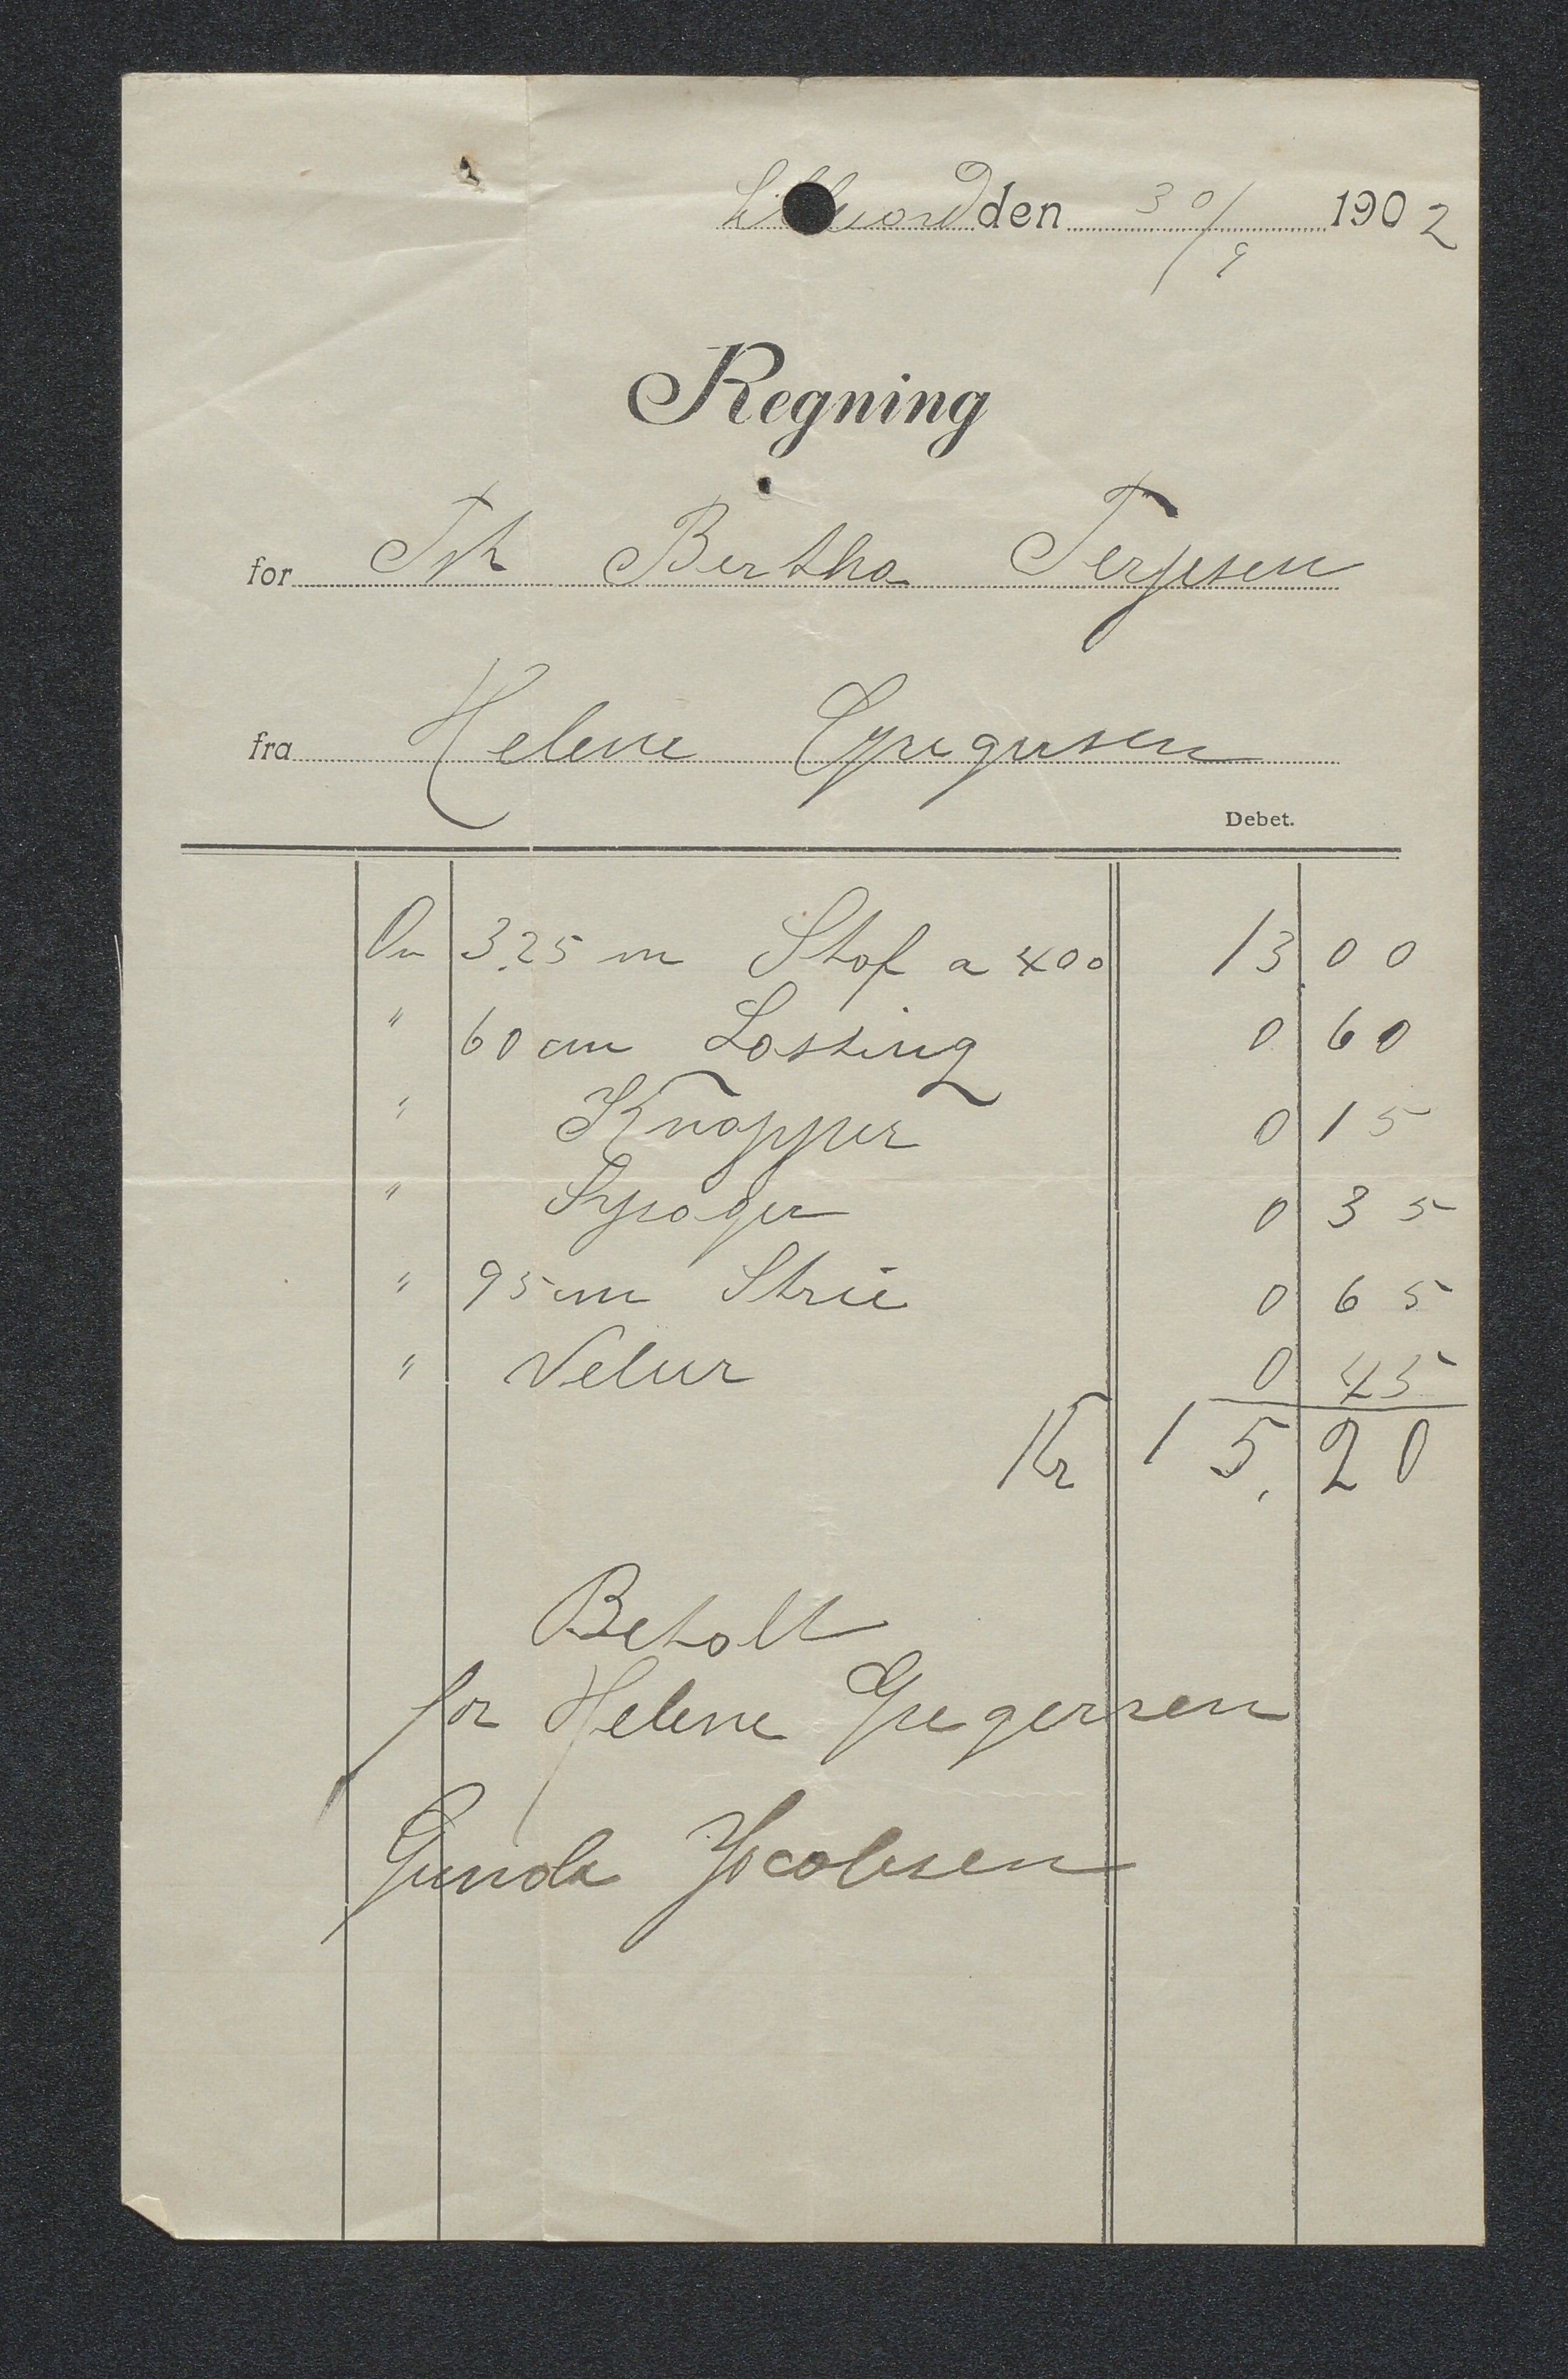 den 30/9 1902
Regning
for Frk Bertha Terjesen
fra Helene Gregersen
Debet.
An 3.25 m Stof a 400 13.00
" 60 cm Lasting 0 60
" Knapper 0 15
" Sysager 0 35
" 95 cm Strie 0 65
" Velur 0 45
Kr 15.20
Betalt
for Helene Gregersen
Gunda Jacobsen